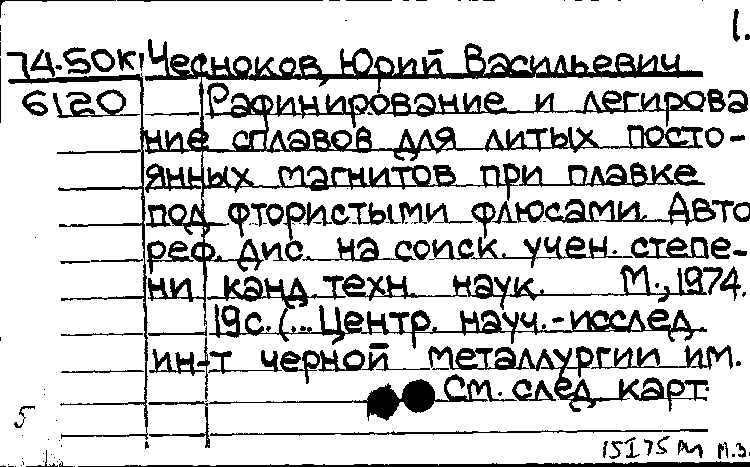 1.
74.50К Чесноков, Юрий Васильевич
6120 Рафинирование и легирова
ние сплавов для литых посто-
янных магнитов при плавке
под фтористыми флюсами. Авто
реф. дис. на соиск. учен. степе-
ни канд. техн. наук. М., 1974.
19с. (... Центр. науч.-исслед.
ин-т черной металлургии им.
См. след. карт.
5
15I75 М.З.